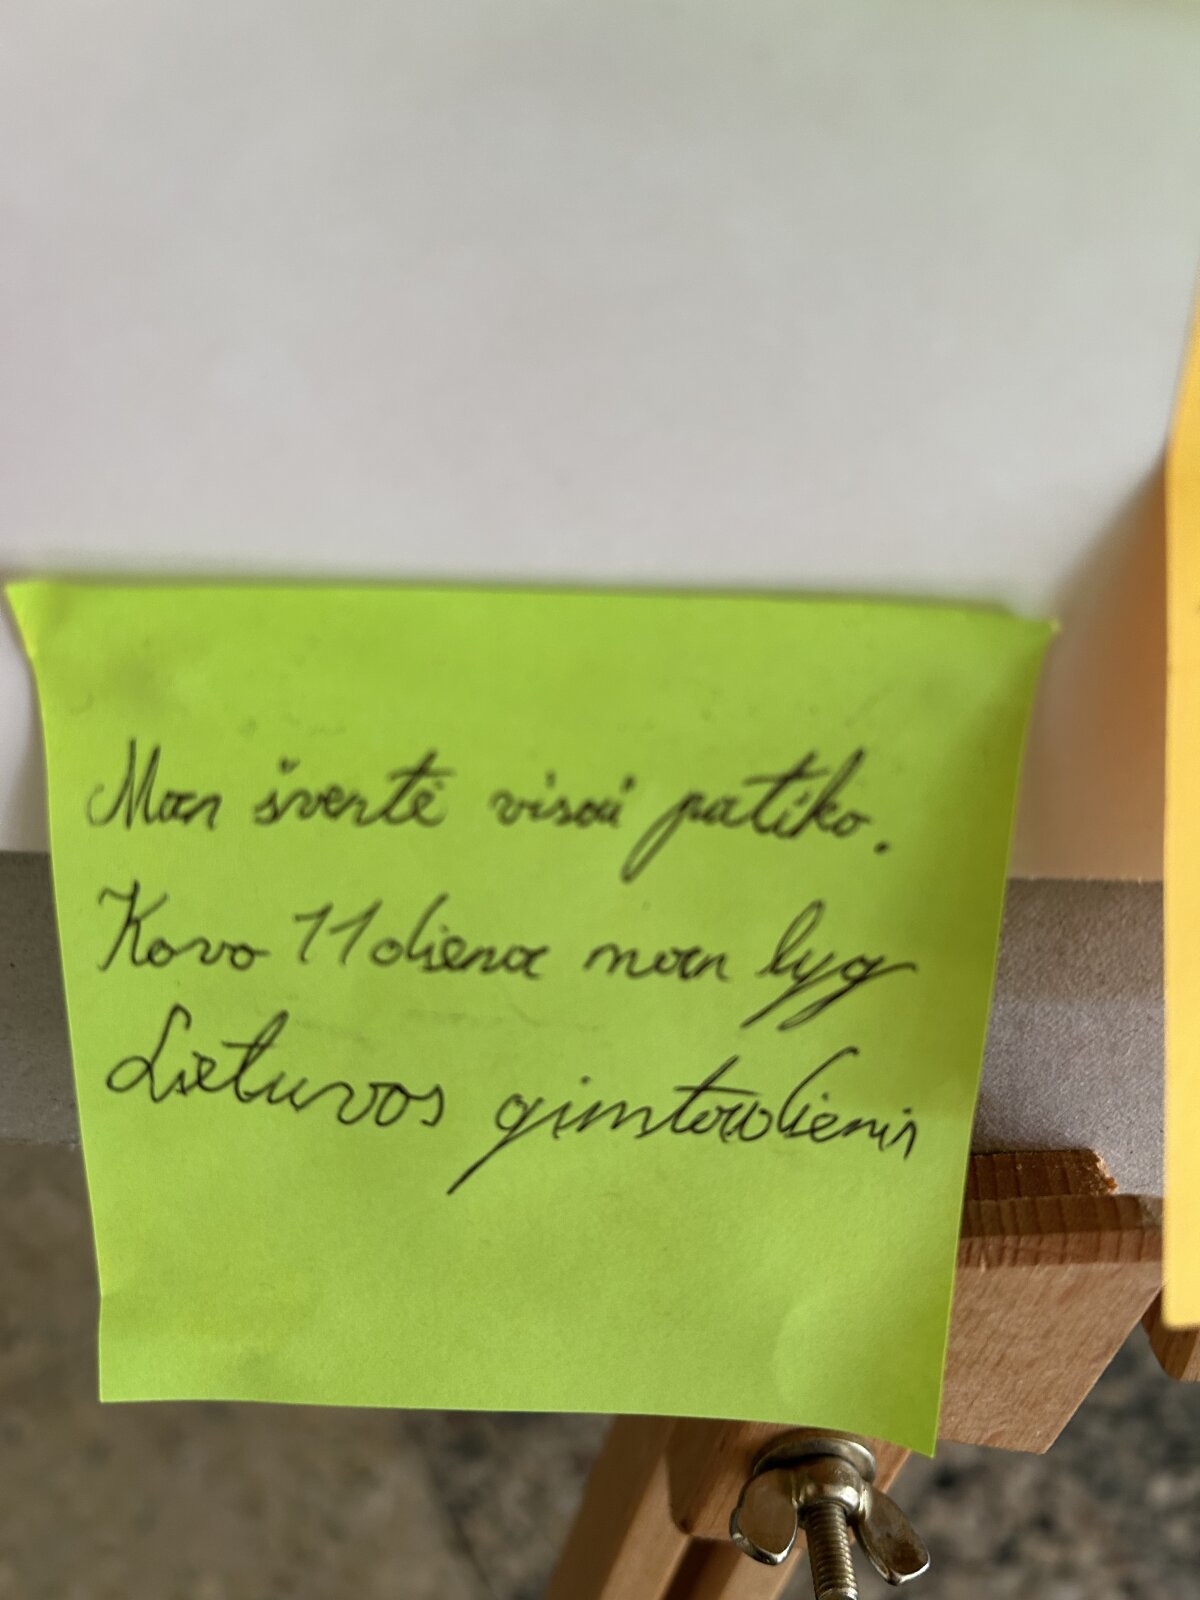 Man šventė visai patiko.
Kovo 11 diena man lyg
Lietuvos gimtadienis